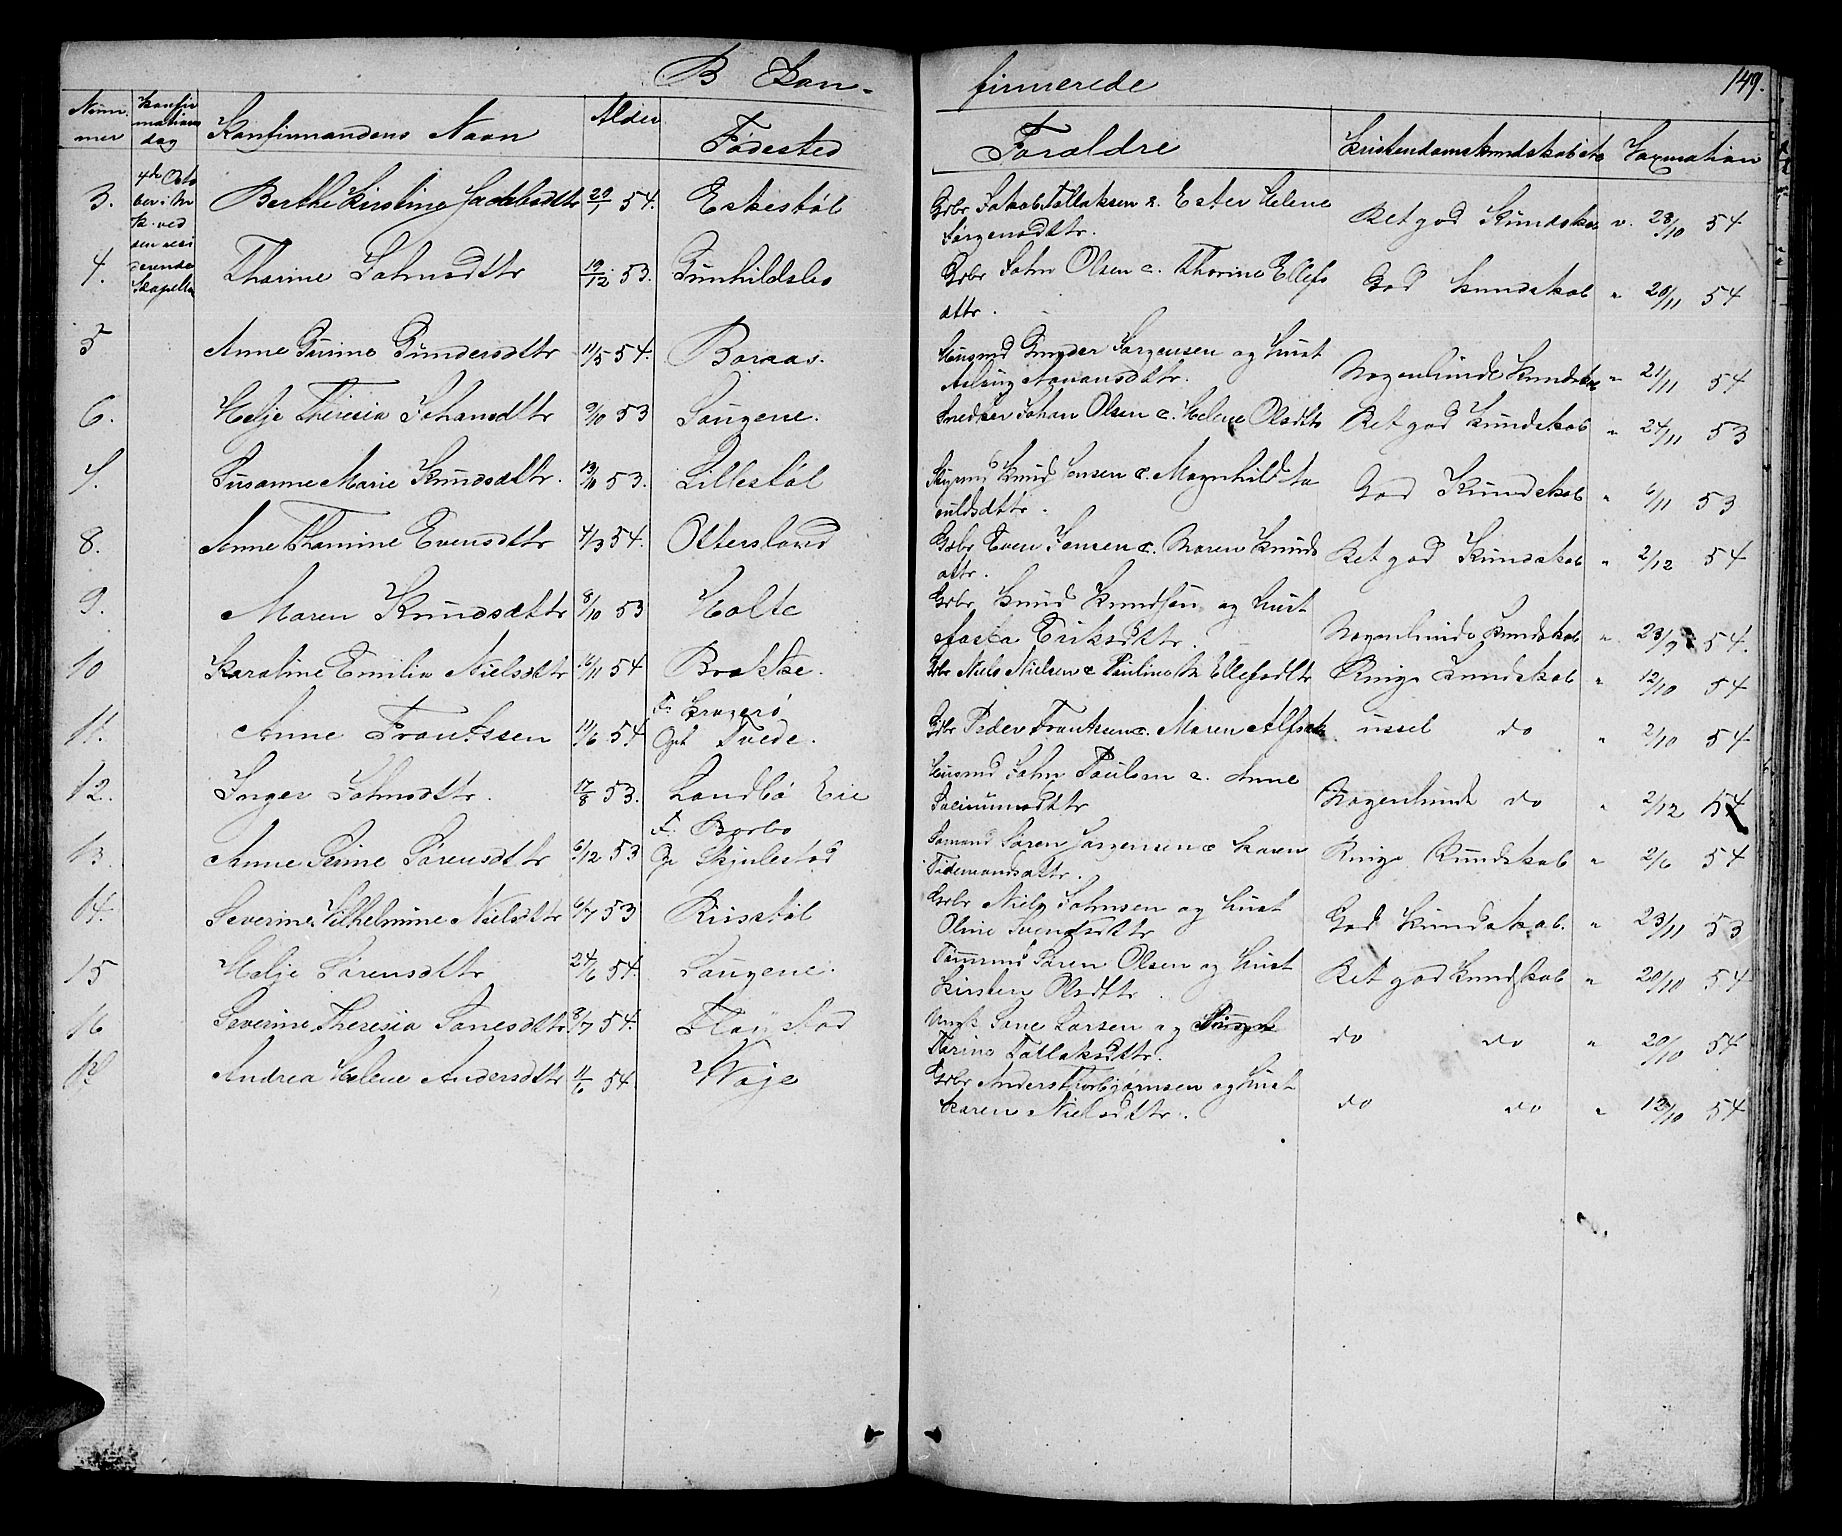 B Kon-
firmerede
149.
Num-
mer
Konfir
mations
dag
Konfirmandens Navn
Alder
Födested
Foraldre
Kristendomskundskab etc
Vaxination
3.
4de Octo
ber i
K. ved
den resi
derende
Kapellan
Berthe Kirstine Jacobsdtr
29/7 54.
Eskestöl
Grbr Jakob Tollaksen & Ester Helene
Jörgensdttr.
Ret god Kundskab
v. 23/10 54
4.
Thorine Johnsdttr
19/12 53.
Gunhildsbo
Grbr John Olsen & Thorine Ellefs
dttr.
God Kundskab
" 20/11 54
5
Anne Gurine Gundersdttr
11/5 54.
Boraas.
Husmd Gunder Jörgensen og Hust
Aslaug Aanonsdttr.
Nogenlunde Kundskab
" 21/11 54
6.
Helje Theresia Johansdttr
9/10 53
Songene.
Snedker Johan Olsen & Helene Olsdtr
Ret god Kundskab
" 24/11 53
7.
Susanne Marie Knudsdttr.
13/11 53.
Lillestöl
Knud Jensen & Magnhild Ta
raldsdttr.
God Kundskab
" 6/11 53
8.
Anne Thomine Evensdttr
4/3 54.
Ottersland
Grbr Even Jensen & Maren Knuds
dttr.
Ret god Kundskab
" 2/12 54
9.
Maren Knudsdttr
8/10 53
Holte
Grbr Knud Knudsen og Hust
Aasta Eriksdttr.
Nogenlunde Kundskab
" 23/9 54.
10
Karoline Emilie Nielsdttr
16/11 54
Brokke.
Grbr Niels Nielsen & Pauline M. Ellefsdttr
Ringe Kundskab
" 12/10 54
11.
Anne Frantssen
11/6 54.
F. Kragerö
Opt Tvede.
Grbr Peder Frantsen & Maren Alfsdtr
ussel do
" 2/10 54
12.
Inger Johnsdttr.
17/8 53.
Landbö Eie
Husmd John Poulsen & Anne
Salimonsdttr
Nogenlunde do
" 2/12 54
13.
Anne Sörensdttr
6/12 53
F. Barbo
Op Skjulestad
Sömand Sören Jörgensen & Karen
Tidemandsdttr.
Ringe Kundskab
" 2/6 54
14.
Severine Vilhelmine Nielsdttr
6/7 53
Riisstöl
Grbr Niels Johnsen og Hust
Oline Svendsdttr
God Kundskab.
" 23/11 53
15
Helje Sörensdttr
24/6 54.
Songene.
Tömmrmd Sören Olsen og Hust
Kirsten Olsdttr.
Ret god Kundskab
" 20/10 54
16
Severine Theresia Tönesdttr.
8/7 54.
Flöystad
Ungk Töne Larsen og
Tarine Tollaksdttr.
do do
" 20/10 54
17
Andrea Helene Andersdttr
11/6 54.
Waje
Grbr Anders Torbjörnsen og Hust
Karen Nielsdttr.
do do
" 12/10 54